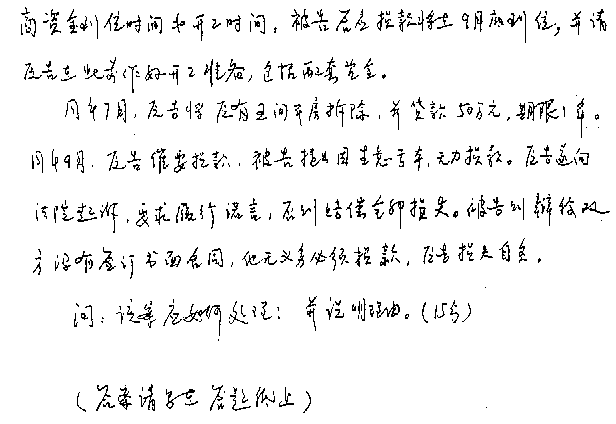 商资金到位时间和开工时间。被告答应捐款将在9月底到位，并请
原告在此前作好开工准备，包括配套资金。
同年7月，原告将原有五间平房拆除，并贷款50万元，期限1年。
同年9月，原告催要捐款，被告提出因生意亏本，无力捐款。原告遂向
法院起诉，要求履行诺言，否则赔偿全部损失。被告则辩称双
方没有签订书面合同，他无义务必须捐款，原告损失自负。
问：该案应如何处理？并说明理由。（15分）
（答案请写在答题纸上）